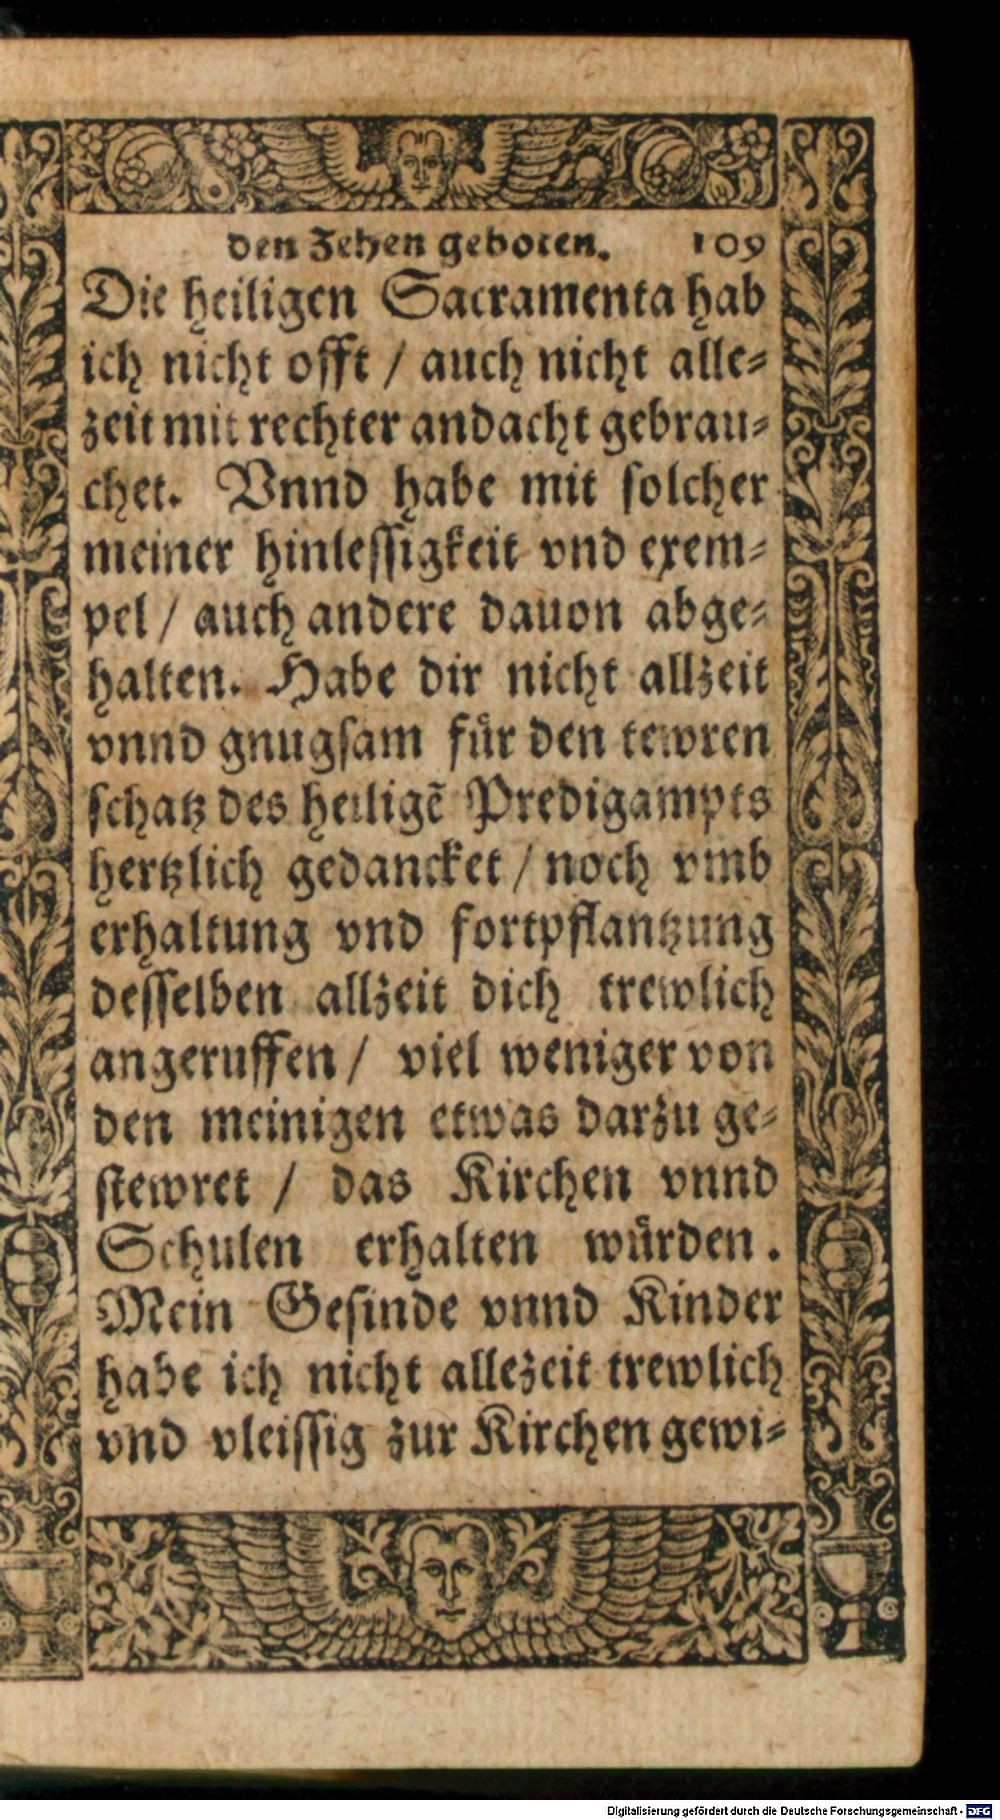 den Zehen geboten. 109
Die heiligen Sacramenta hab
ich nicht offt / auch nicht alle⸗
zeit mit rechter andacht gebrau⸗
chet. Vnnd habe mit solcher
meiner hinlessigkeit vnd exem⸗
pel / auch andere dauon abge⸗
halten. Habe dir nicht allzeit
vnnd gnugsam fuͤr den tewren
schatz des heiligẽ Predigampts
hertzlich gedancket / noch vmb
erhaltung vnd fortpflantzung
desselben allzeit dich trewlich
angeruffen / viel weniger von
den meinigen etwas darzu ge⸗
stewret / das Kirchen vnnd
Schulen erhalten wuͤrden.
Mein Gesinde vnnd Kinder
habe ich nicht allezeit trewlich
vnd vleissig zur Kirchen gewi⸗
Digitalisierung gefördert durch die Deutsche Forschungsgemeinschaft - DFG